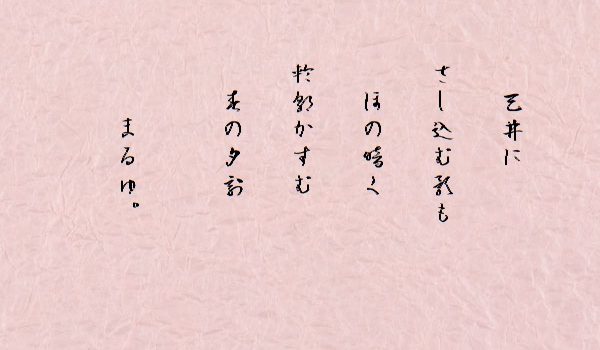 天井に
さし込む影も
ほの暗く
輪郭かすむ
春の夕刻
まるゆ。